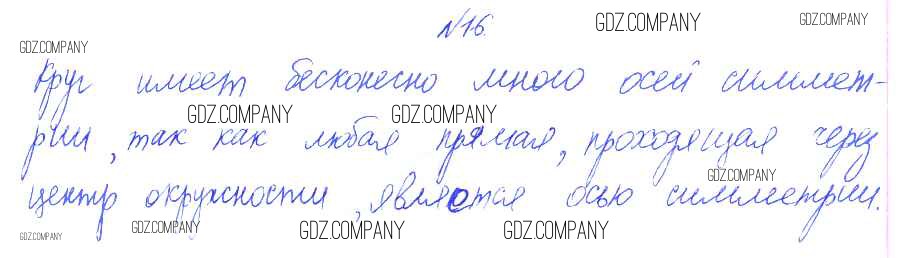 №16.
GDZ.COMPANY GDZ.COMPANY
GDZ.COMPANY
Круг имеет бесконечно много осей симмет-
GDZ.COMPANY GDZ.COMPANY
рии, так как любая прямая, проходящая через
GDZ.COMPANY
центр окружности, является осью симметрии.
GDZ.COMPANY GDZ.COMPANY GDZ.COMPANY GDZ.COMPANY